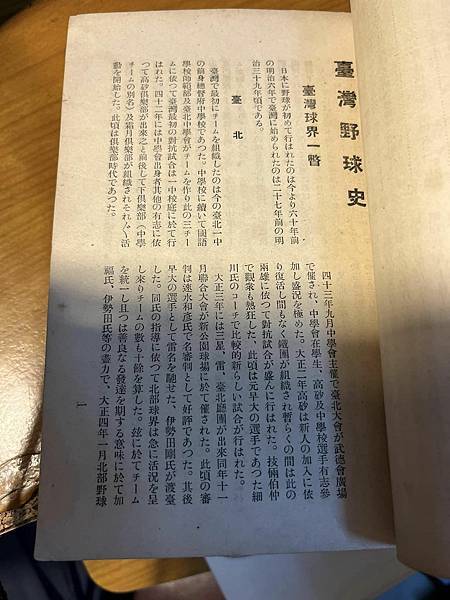 臺灣野球史
臺灣球界一瞥
日本に野球が初めて行はれたのは今より六十年前
の明治六年で臺灣に始められたのは二十七年前の明
治三十九年頃である。
臺北
臺灣で最初にチームを組織したのは今の臺北一中
の前身總督府中學校であつた。中學校に續いて國語
學校師範部及臺北中學會がチームを作り此の三チー
ムに依つて臺灣最初の對抗試合は一中校庭に於て行
はれた。四十二年には中學會出身者其他の有志に依
つて高砂俱樂部が出來之と前後して下俱樂部(中學
チームの別名)及霜月俱樂部が組織されそれ〲活
動を開始した。此頃は俱樂部時代であつた。
四十三年九月中學會主催で臺北大會が武德會廣場
で催され、中學會在學生、高砂及中學校選手有志參
加し盛況を極めた。大正二年高砂は新人の加入に依
り復活し間もなく鐵團が組織され暫らくの間は此の
兩雄に依つて對抗試合が盛んに行はれた。技倆伯仲
で觀衆も熱狂した。此頃は元早大の選手であつた細
川氏のコーチで比較的新らしい試合が行はれた。
大正三年には三星、雷、臺北廳團が出來同年十一
月聯合大會が新公園球場に於て催された。此頃の審
判は速水和彥氏で名審判として好評であつた。其後
早大の選手として雷名を馳せた、伊勢田剛氏が渡臺
した。同氏の指導に依つて北部球界は急に活況を呈
し來りチームの數も十餘を算した。玆に於てチーム
を統一し且つは善良なる發達を期する意味に於て加
福氏、伊勢田氏等の盡力で、大正四年一月北部野球
一